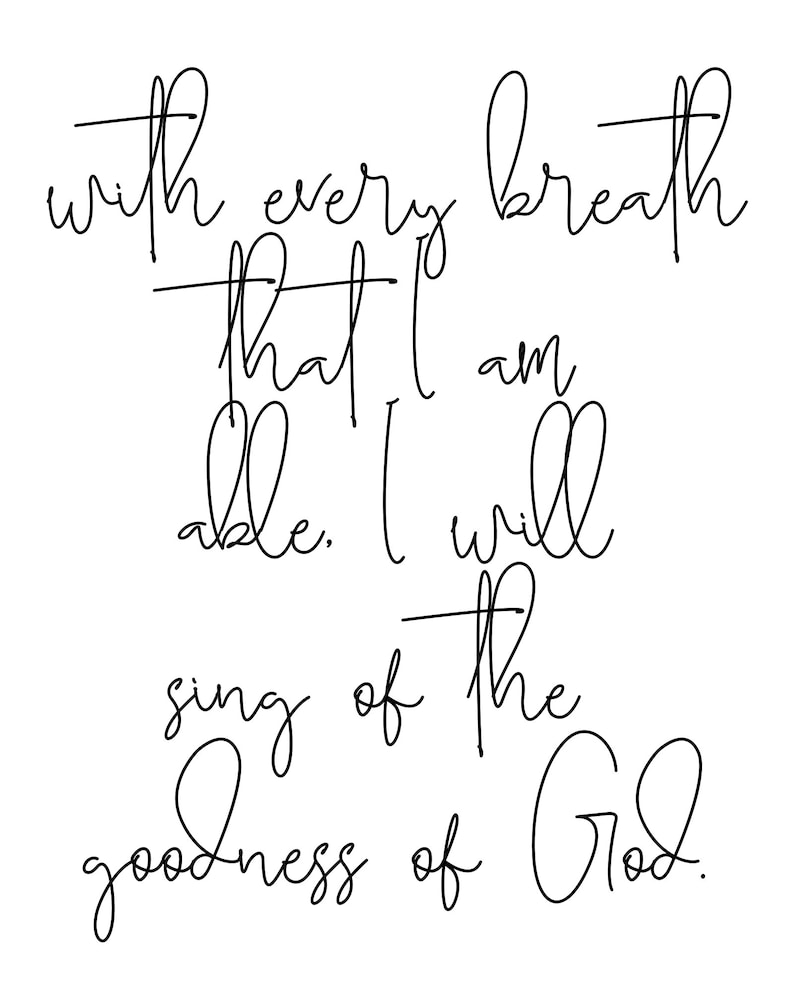 with every breath
that I am
able, I will
sing of the
goodness of God.